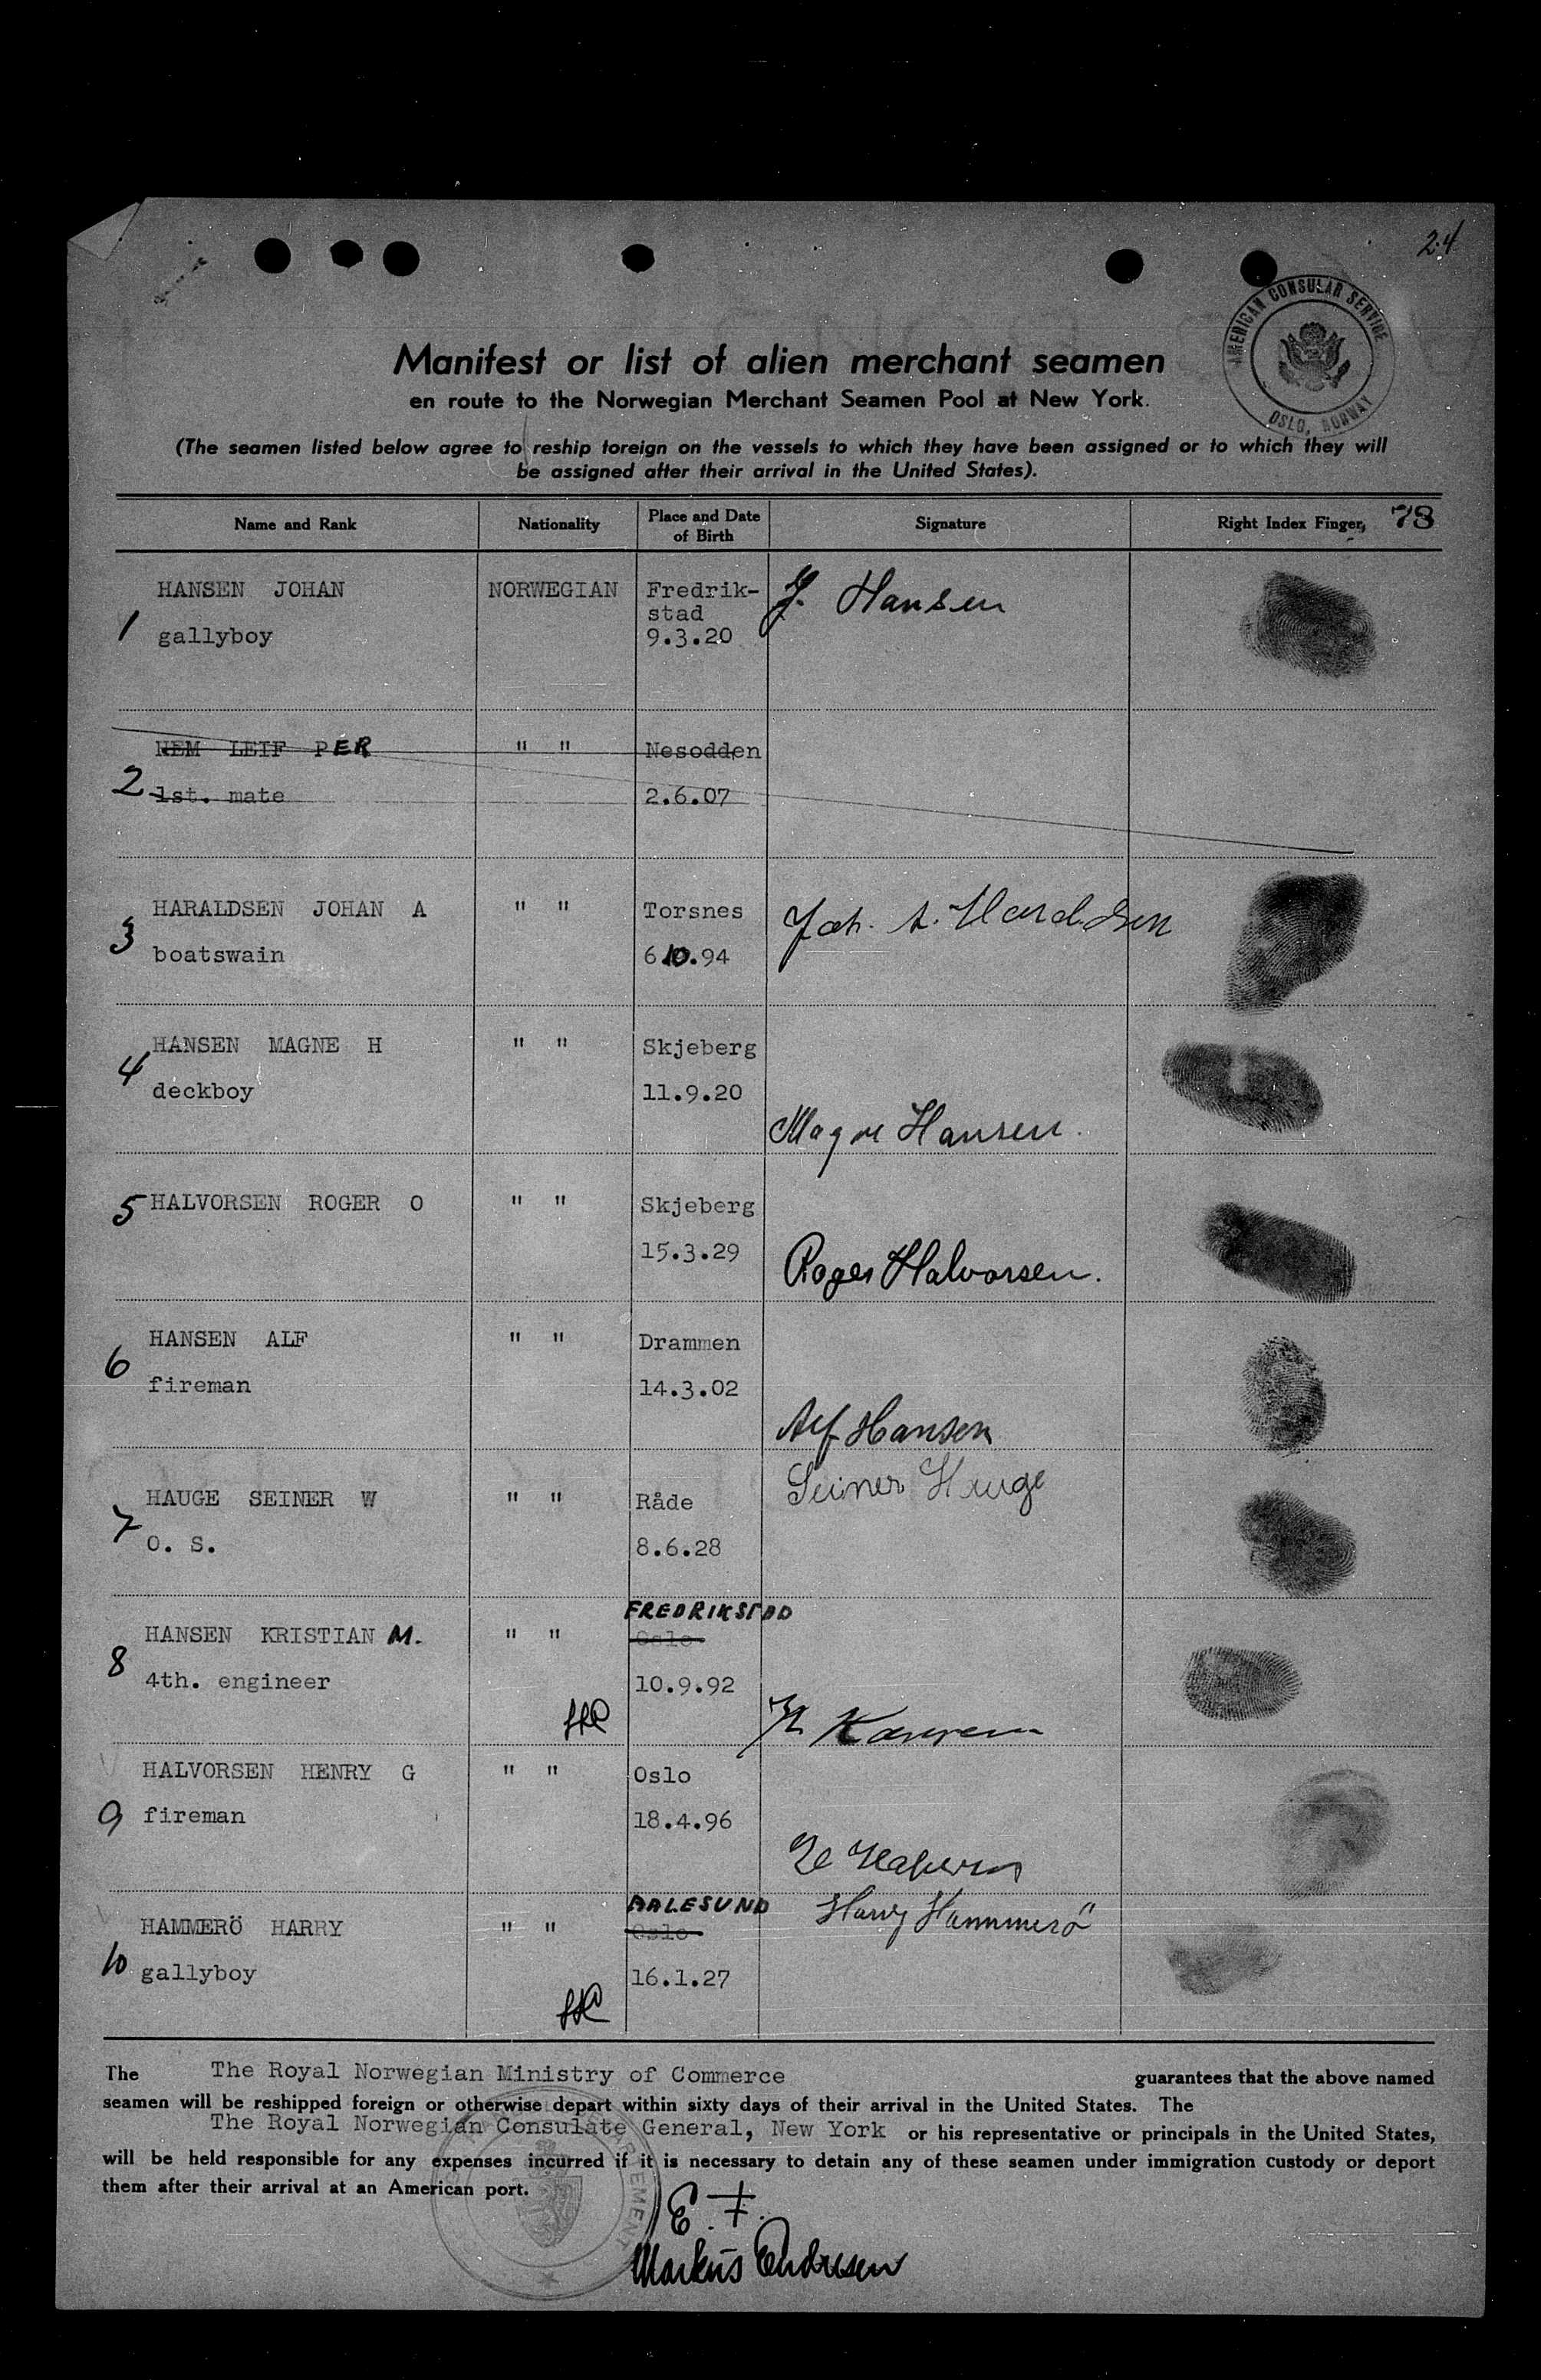 24
AMERICAN CONSULAR SERVICE
OSLO, NORWAY
Manifest or list of alien merchant seamen
en route to the Norwegian Merchant Seamen Pool at New York.
(The seamen listed below agree to reship foreign on the vessels to which they have been assigned or to which they will
be assigned after their arrival in the United States).
Name and Rank Nationality Place and Date of Birth Signature Right Index Finger, 78
1 HANSEN JOHAN NORWEGIAN Fredrik-
stad J. Hansen
gallyboy 9.3.20
NEM LEIF PER " " Nesodden
2 1st. mate 2.6.07
HARALDSEN JOHAN A " " Torsnes Joh. A. Haraldsen
3 boatswain 6.10.94
HANSEN MAGNE H " " Skjeberg
4 deckboy 11.9.20
Magne Hansen.
5 HALVORSEN ROGER O " " Skjeberg
15.3.29
Roger Halvorsen.
HANSEN ALF " " Drammen
6 fireman 14.3.02
Alf Hansen
HAUGE SEINER W " " Råde Seiner Hauge
7 O. S. 8.6.28
FREDRIKSTAD
HANSEN KRISTIAN M. " " Oslo
8 4th. engineer 10.9.92
HALVORSEN HENRY G " " Oslo
9 fireman 18.4.96
AALESUND
HAMMERÖ HARRY " " Oslo Harry Hammerö
10 gallyboy 16.1.27
The The Royal Norwegian Ministry of Commerce guarantees that the above named
seamen will be reshipped foreign or otherwise depart within sixty days of their arrival in the United States. The
The Royal Norwegian Consulate General, New York or his representative or principals in the United States,
will be held responsible for any expenses incurred if it is necessary to detain any of these seamen under immigration custody or deport
them after their arrival at an American port.
E. F.
Markus Endresen